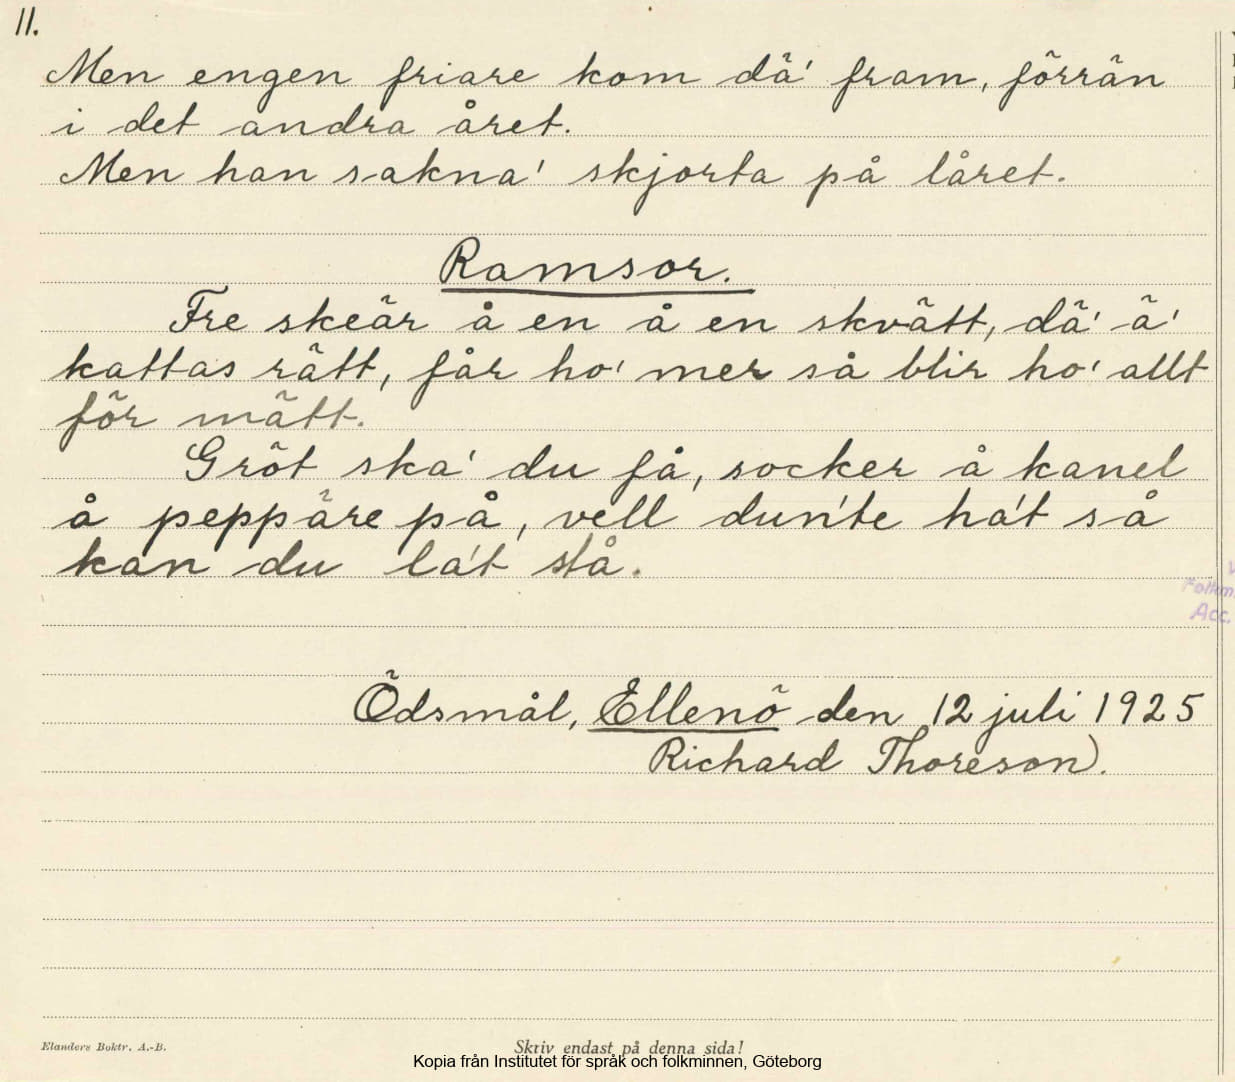 11.
Men engen friare kom dä' fram, förrän
i det andra året.
Men han sakna' skjorta på låret.
Ramsor.
Fre skeär å en å en skvätt, dä' ä'
kattas rätt, får ho' mer så blir ho' allt
för mätt.
Gröt ska' du få, socker å kanel
å peppäre på, vell dun'te ha't så
kan du la't stå.
Folkm
Acc.
Ödsmål, Ellenö den 12 juli 1925
Richard Thoreson).
Elanders Boktr. A.-B.
Skriv endast på denna sida!
Kopia från Institutet för språk och folkminnen, Göteborg